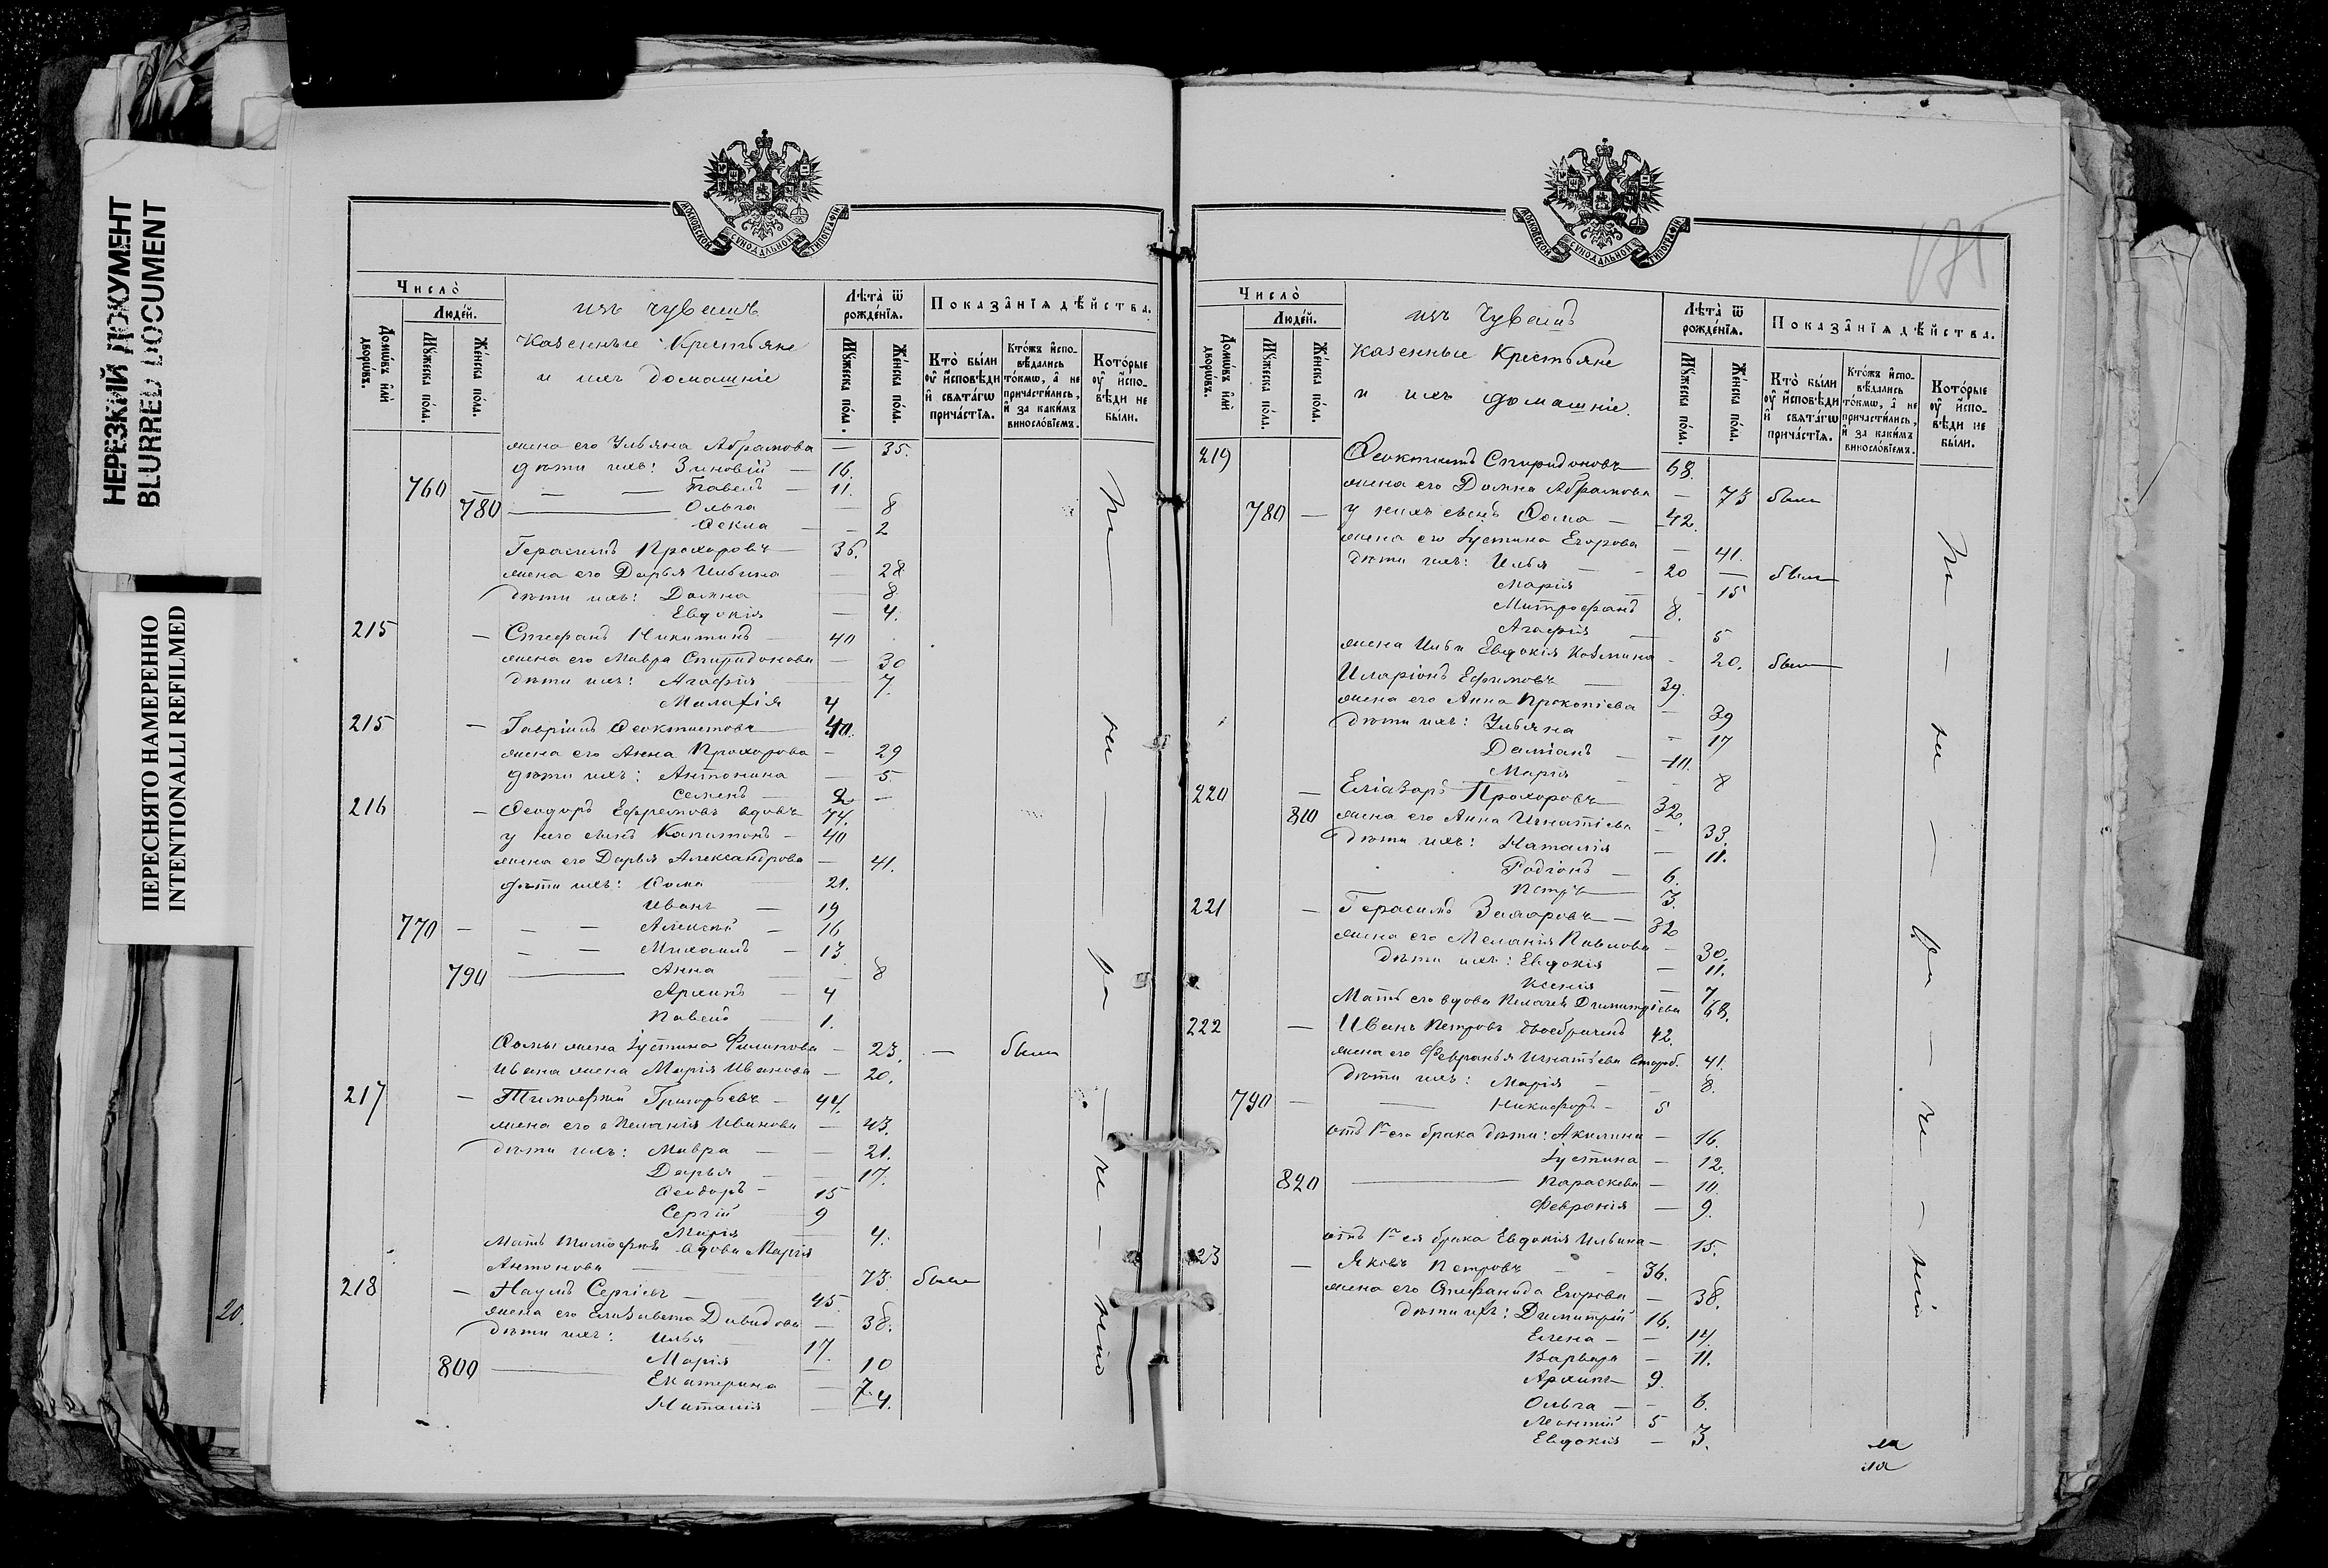 НЕРЕЗКИЙ ДОКУМЕНТ
BLURRED DOCUMENT
ПЕРЕСНЯТО НАМЕРЕННО
INTENTIONALLI REFILMED
20.
МОСКОВСКОЙ СѴНОДАЛЬНОЙ ТИПОГРАФІИ
Число̀
Люде́й.
Домѡ́въ и҆лѝ дворѡ́въ.
Мꙋ́жеска по́ла.
Же́нска по́ла.
изъ чувашъ
Казенные Крестьяне
и ихъ домашніе
Лѣта̀ ѿ рожде́нїѧ.
Мꙋ́жеска по́ла.
Же́нска по́ла.
Показа̑нїѧ дѣ́йства.
Кто̀ бы́ли оу҆ и҆сповѣ́ди и҆ свѧта́гѡ прича́стїѧ.
Кто́жъ и҆спо-вѣ́дались то́кмѡ, а҆ не причасти́лись, и҆ за каки́мъ винослѡ́вїемъ.
Кото́рые оу҆ и҆спо-вѣ́ди не бы́ли.
жена его Ульяна Абрамова — 35.
дѣти ихъ: Зиновій — 16.
760 — — Павелъ — 11.
780 — Ольга — 8
Ѳекла — 2
Герасимъ Прохоровъ — 36.
жена его Дарья Ильина — 28
дѣти ихъ: Домна — 8.
Евдокія — 4.
215 — Стефанъ Никитинъ — 40
жена его Мавра Спиридонова — 30
дѣти ихъ: Агафія — 7.
Малахія 4
215 — Гавріилъ Ѳеоктистовъ — 40.
жена его Анна Прохорова — 29
дѣти ихъ: Антонина — 5.
Семенъ — 2 —
216 — Ѳеодоръ Ефремовъ вдовъ 74.
у него сынъ Капитонъ — 40
жена его Дарья Александрова — 41.
дѣти ихъ: Ѳома 21.
Иванъ — 19
770 — — — Алексѣй — 16
— — Михаилъ — 13
790 — Анна — 8
Архипъ — 4
Павелъ — 1.
Ѳомы жена Іустина Филипова — 23. — были
Ивана жена Марія Иванова — 20.
217 — Тимоѳей Григорьевъ — 44.
жена его Пелагія Иванова — 43.
дѣти ихъ: Мавра — — 21.
Дарья — — 17.
Ѳеодоръ — 15
Сергій 9
Марія 4.
Мать Тимоѳея вдова Марія
Антонова — 73. были
218 — Наумъ Сергіевъ — 45.
жена его Елизавета Давидова — 38.
дѣти ихъ: Илья 17.
Марія — 10
800 — Екатерина — 7.
Наталія — 4.
По — не — ра — че — нію
175
МОСКОВСКОЙ СѴНОДАЛЬНОЙ ТИПОГРАФІИ
Число̀
Люде́й.
Домѡ́въ и҆лѝ дворѡ́въ.
Мꙋ́жеска по́ла.
Же́нска по́ла.
изъ Чувашъ
Казенные Крестьяне
и ихъ домашніе.
Лѣта̀ ѿ рожде́нїѧ.
Мꙋ́жеска по́ла.
Же́нска по́ла.
Показа̑нїѧ дѣ́йства.
Кто̀ бы́ли оу҆ и҆сповѣ́ди и҆ свѧта́гѡ прича́стїѧ.
Кто́жъ и҆спо-вѣ́дались то́кмѡ, а҆ не причасти́лись, и҆ за каки́мъ винослѡ́вїемъ.
Кото́рые оу҆ и҆спо-вѣ́ди не бы́ли.
219 Ѳеоктистъ Спиридоновъ — 68.
жена его Домна Абрамова — 73 были
780 — у нихъ сынъ Ѳома — 42.
жена его Іустина Егорова — 41.
дѣти ихъ: Илья — 20 — были
Марія — 15
Митрофанъ 8.
Агафія — 5
жена Ильи Евдокія Козмина — 20. были
Иларіонъ Ефимовъ — 39.
жена его Анна Прокопіева — 39
дѣти ихъ: Ульяна — 17
Даміанъ — 10.
Марія — 8
220 — Еліазаръ Прохоровъ — 32.
810 жена его Анна Игнатіева — 33.
дѣти ихъ: Наталія — 11.
Родіонъ — 6.
Петръ — 3.
221 — Герасимъ Захаровъ — 32
жена его Меланія Павлова — 30.
дѣти ихъ: Евдокія — 11.
Ксенія — 7
Мать его вдова Пелагія Димитріева 68.
222 — Иванъ Петровъ двоебрачный 42.
жена его Февронья Игнатьева второб. 41.
дѣти ихъ: Марія — — 8.
790 — — Никифоръ — 5
отъ 1го его брака дѣти: Акилина — 16.
Іустина — 12.
820 — Параскева — 10.
Февронія — 9.
отъ 1го ея брака Евдокія Ильина — 15.
223 — Яковъ Петровъ — — 36.
жена его Стефанида Егорова — 38.
дѣти ихъ: Димитрій 16.
Елена — — 14.
Варвара — 11.
Архипъ — 9.
Ольга — — 6.
Леонтій 5
Евдокія — 3.
По — не — ра — че — нію